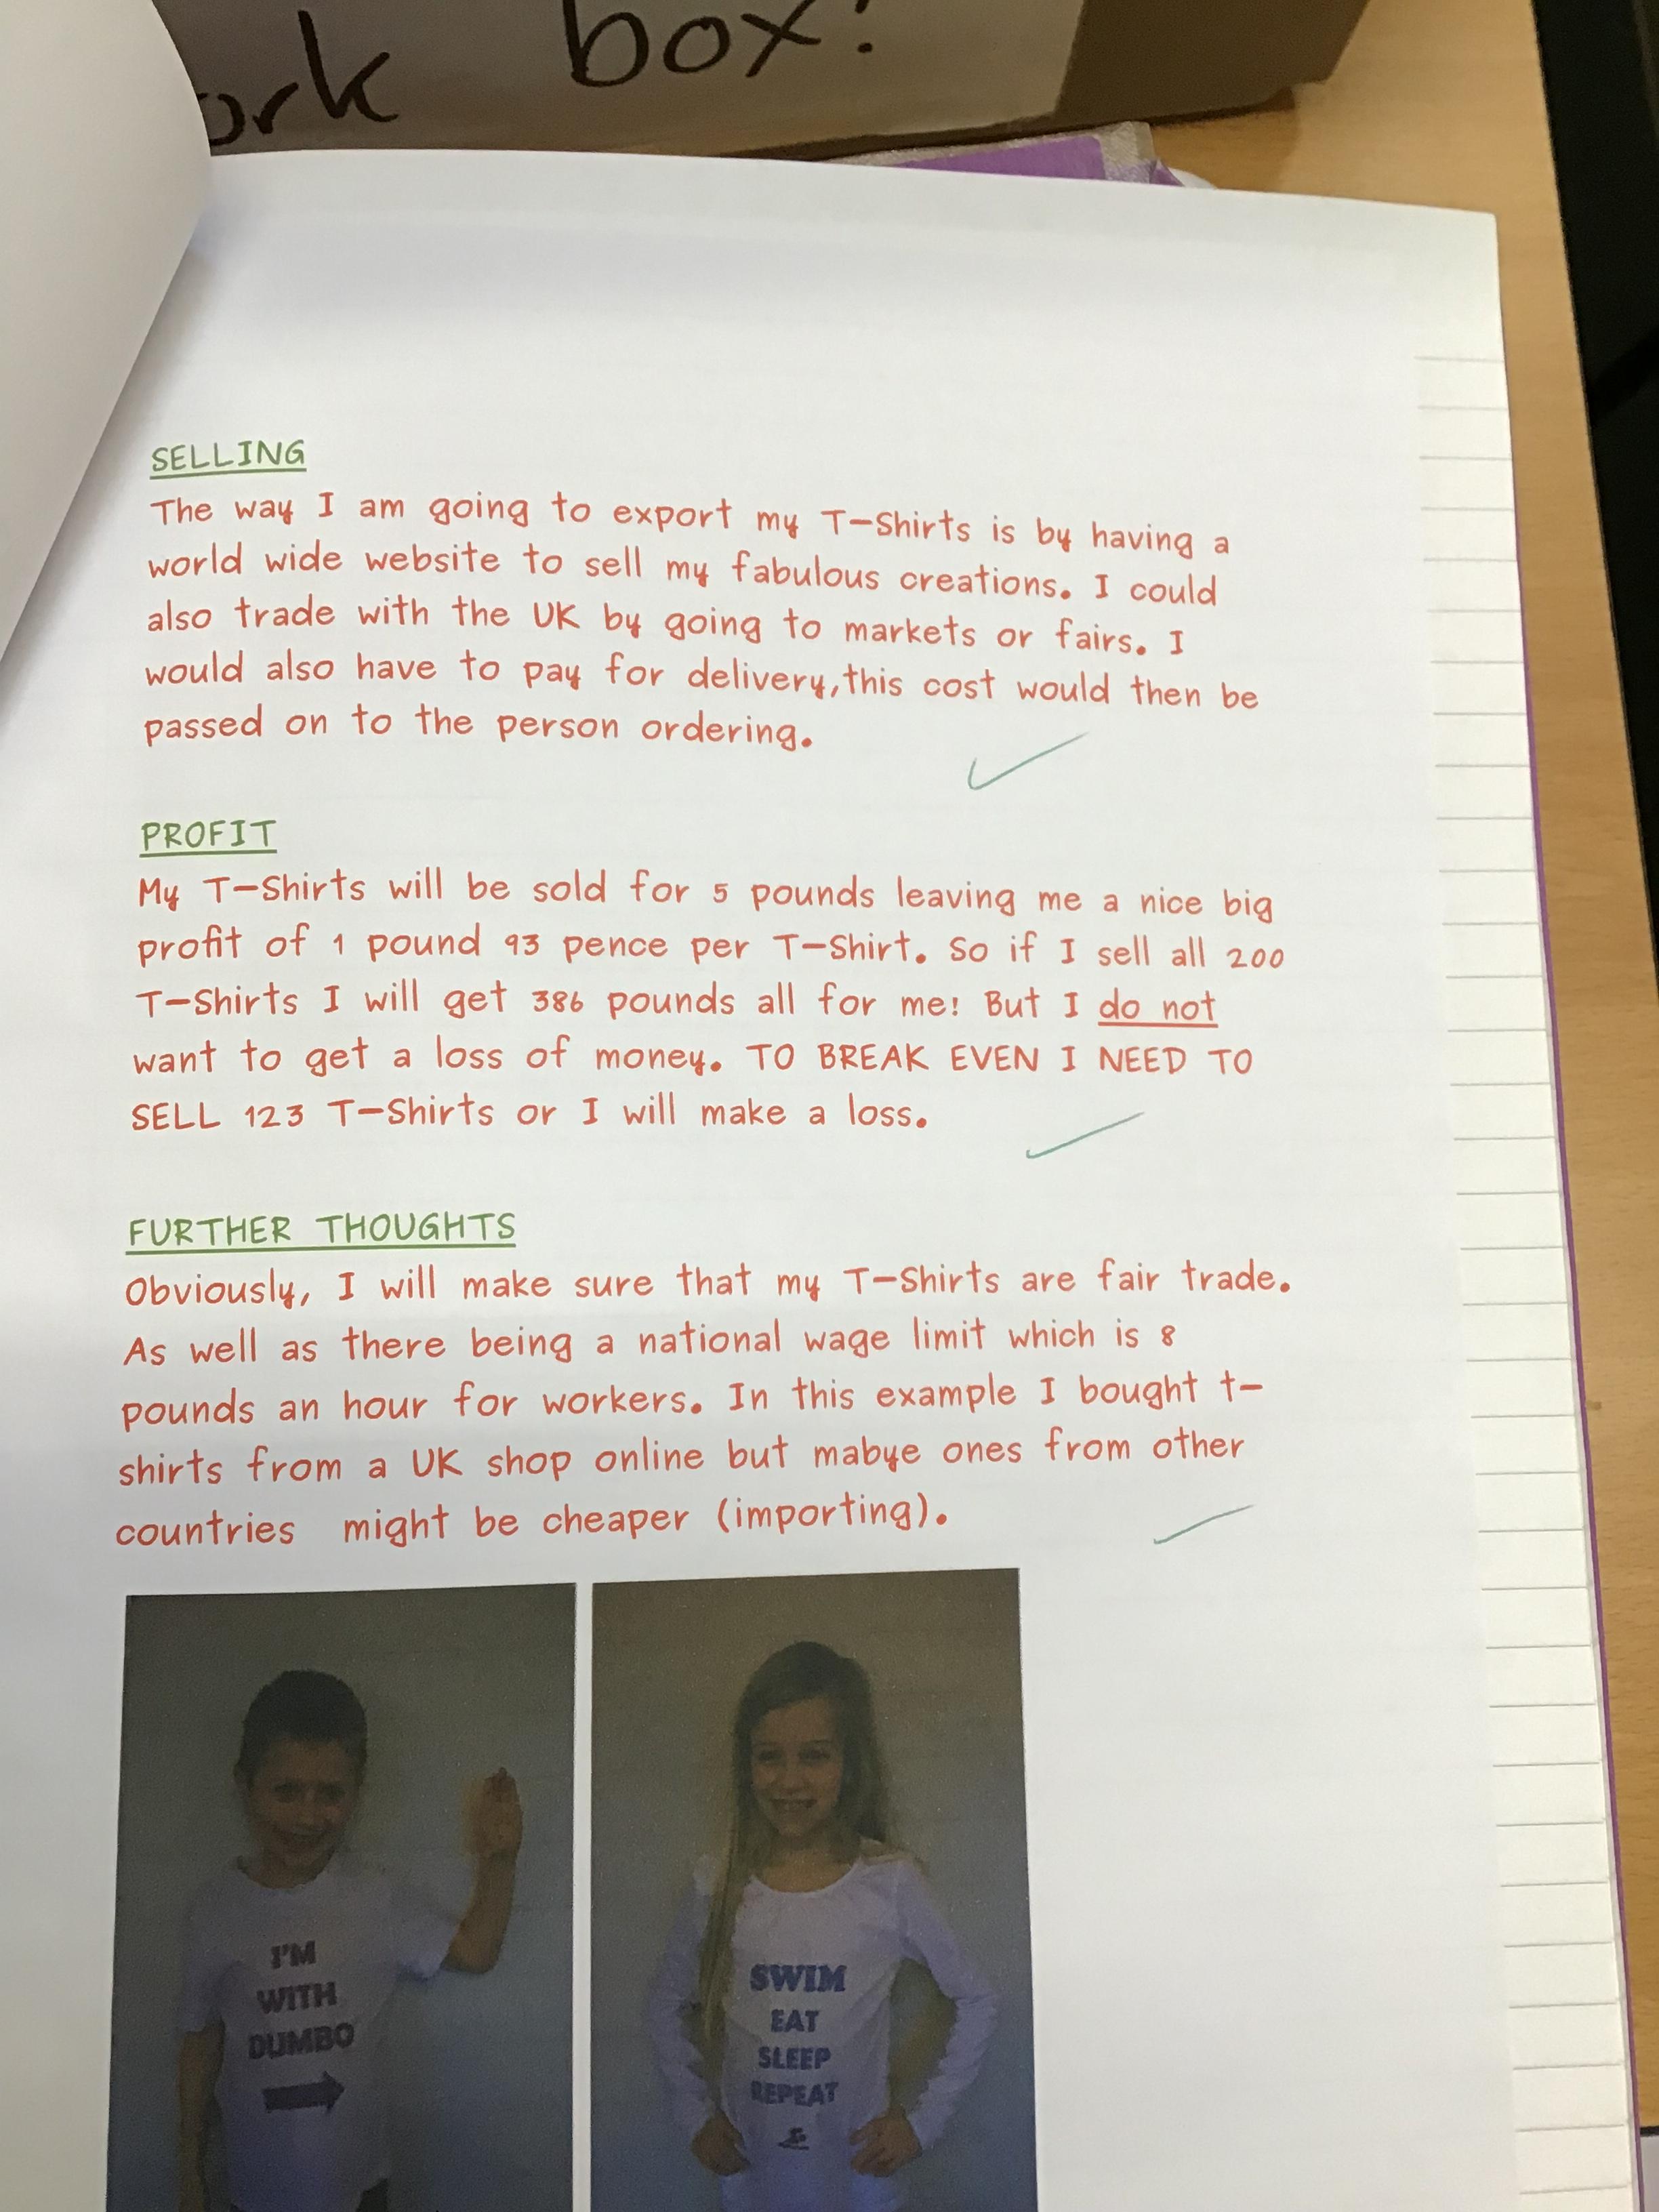 ork box!
SELLING
The way I am going to export my T-Shirts is by having a
world wide website to sell my fabulous creations. I could
also trade with the UK by going to markets or fairs. I
would also have to pay for delivery,this cost would then be
passed on to the person ordering.
PROFIT
My T-Shirts will be sold for 5 pounds leaving me a nice big
profit of 1 pound 93 pence per T-Shirt. So if I sell all 200
T-Shirts I will get 386 pounds all for me! But I do not
want to get a loss of money. TO BREAK EVEN I NEED TO
SELL 123 T-Shirts or I will make a loss.
FURTHER THOUGHTS
Obviously, I will make sure that my T-Shirts are fair trade.
As well as there being a national wage limit which is 8
pounds an hour for workers. In this example I bought t-
shirts from a UK shop online but mabye ones from other
countries might be cheaper (importing).
I'M
WITH
DUMBO
SWIM
EAT
SLEEP
REPEAT